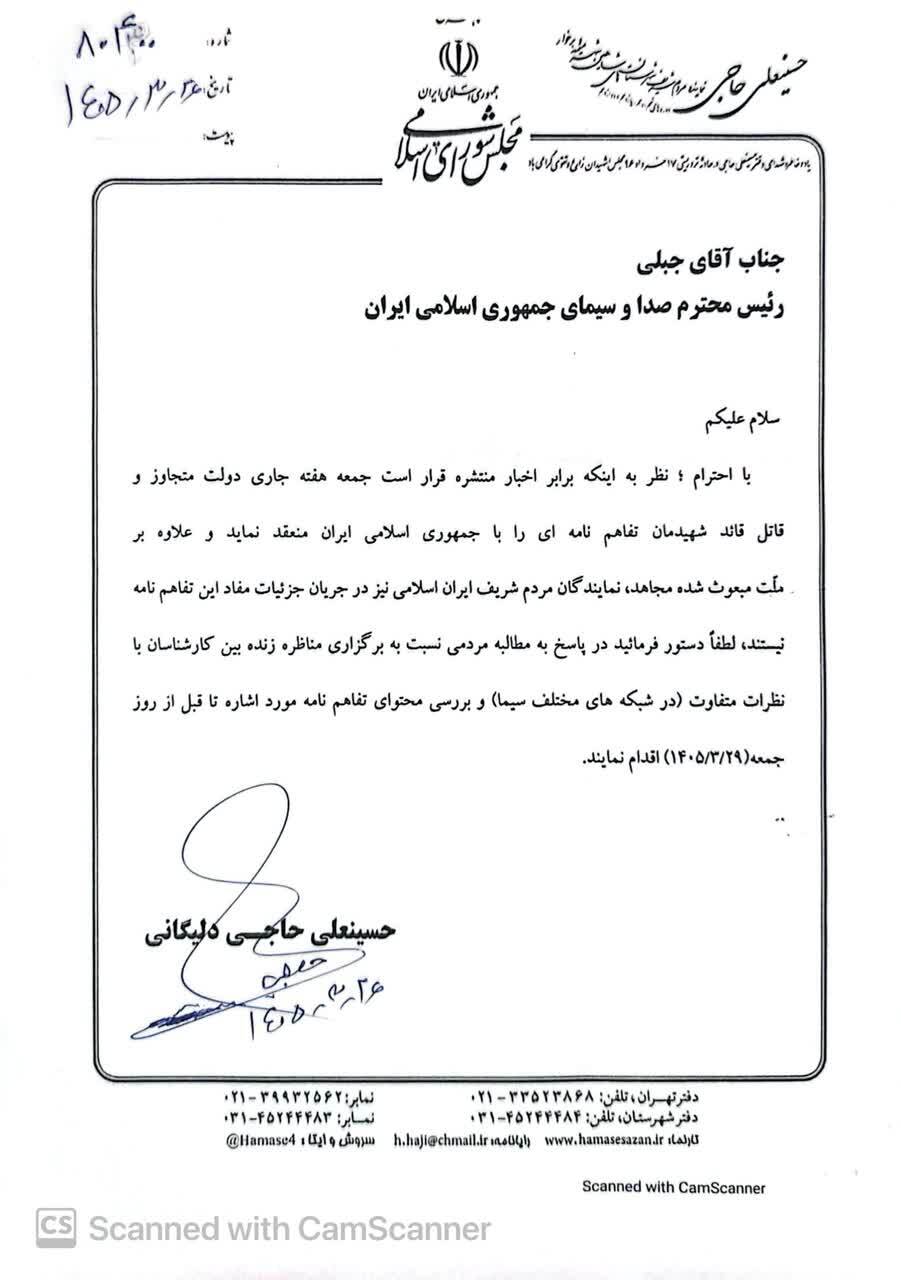 شماره:
۸۰۱۴۰۰
تاریخ: ۱۴۰۵,۳,۲۶
پیوست:
جمهوری اسلامی ایران
مجلس شورای اسلامی
حسینعلی حاجی
جناب آقای جبلی
رئیس محترم صدا و سیمای جمهوری اسلامی ایران
سلام علیکم
با احترام ؛ نظر به اینکه برابر اخبار منتشره قرار است جمعه هفته جاری دولت متجاوز و
قاتل قائد شهیدمان تفاهم نامه ای را با جمهوری اسلامی ایران منعقد نماید و علاوه بر
ملّت مبعوث شده مجاهد، نمایندگان مردم شریف ایران اسلامی نیز در جریان جزئیات مفاد این تفاهم نامه
نیستند، لطفاً دستور فرمائید در پاسخ به مطالبه مردمی نسبت به برگزاری مناظره زنده بین کارشناسان با
نظرات متفاوت (در شبکه های مختلف سیما) و بررسی محتوای تفاهم نامه مورد اشاره تا قبل از روز
جمعه(۱۴۰۵/۳/۲۹) اقدام نمایند.
حسینعلی حاجی دلیگانی
۱۴۰۵,۳,۲۶
دفتر تهران، تلفن: ۳۳۵۲۳۸۶۸-۰۲۱ نمابر: ۳۹۹۳۲۵۶۲-۰۲۱
دفتر شهرستان، تلفن: ۴۵۲۴۴۴۸۴-۰۳۱ نمابر: ۴۵۲۴۴۴۸۳-۰۳۱
تارنما: www.hamasesazan.ir رایانامه: h.haji@chmail.ir سروش و ایتا: @Hamase4
Scanned with CamScanner
CS Scanned with CamScanner